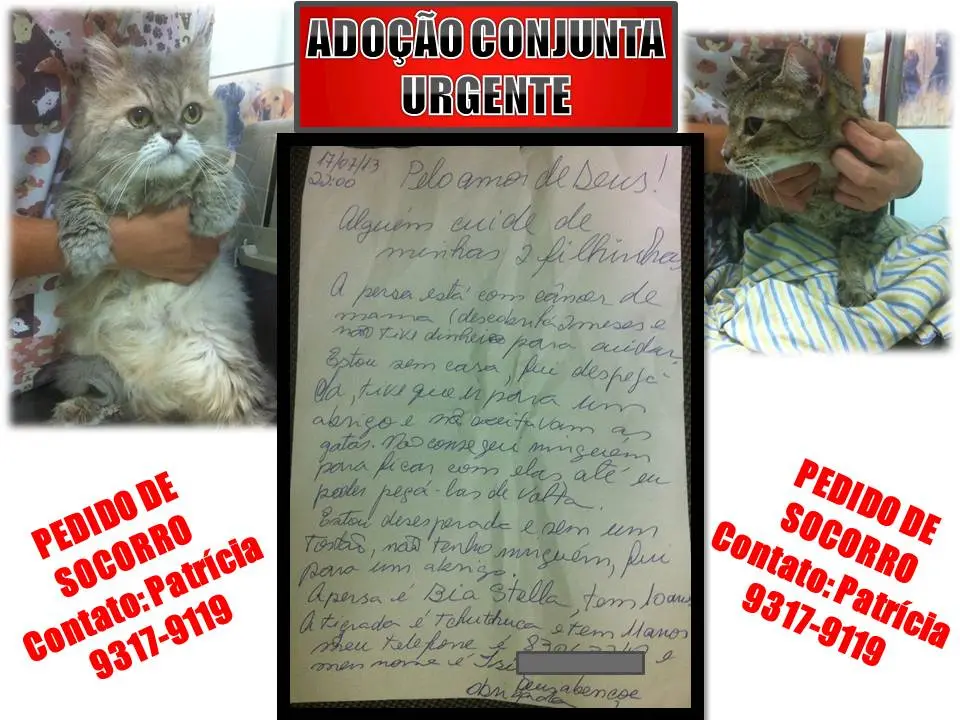 ADOÇÃO CONJUNTA
URGENTE
17/07/13
22:00
Pelo amor de Deus!
Alguém cuide de
minhas 2 filhinhas
A persa está com câncer de
mama (descobri há 2 meses e
não tive dinheiro para cuidar
Estou sem casa, fui despeja-
da, tive que ir para um
abrigo e não aceitavam as
gatas. Não consegui ninguém
para ficar com elas até eu
poder pegá-las de volta.
Estou desesperada e sem um
tostão, não tenho ninguém, fui
para um abrigo.
A persa é Bia Stella, tem 10 anos
A tigrada é Tchutchuca e tem 11 anos
meu telefone é e
meu nome é
obrigada Deus abençoe
PEDIDO DE
SOCORRO
Contato: Patrícia
9317-9119
PEDIDO DE
SOCORRO
Contato: Patrícia
9317-9119